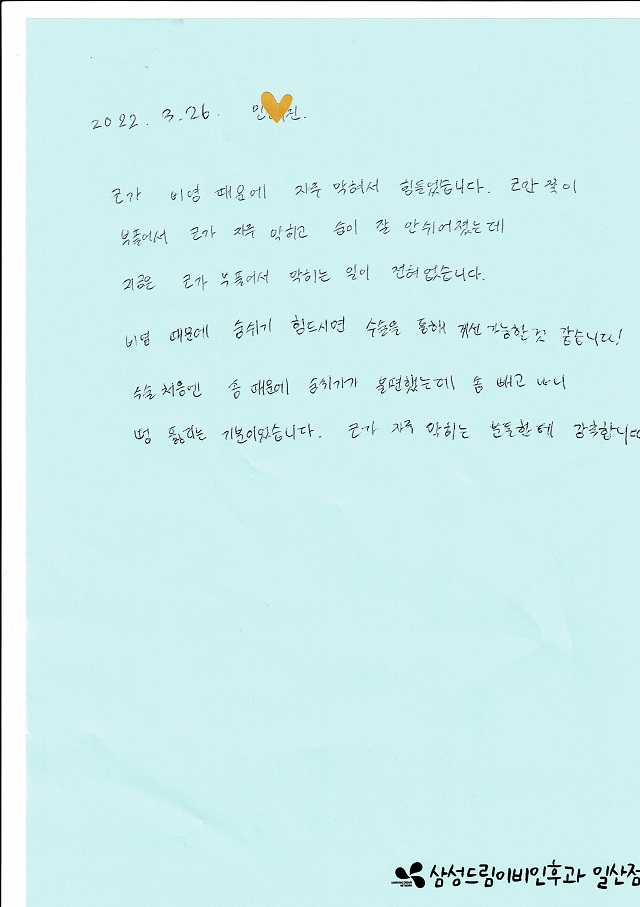 2022. 3. 26. 민 진.
코가 비염 때문에 자주 막혀서 힘들었습니다. 코안 쪽이
부풀어서 코가 자주 막히고 숨이 잘 안쉬어졌는데
지금은 코가 부풀어서 막히는 일이 전혀없습니다.
비염 때문에 숨쉬기 힘드시면 수술을 통해 개선 가능한것 같습니다!
수술처음엔 솜 때문에 숨쉬기가 불편했는데 솜 빼고 나니
뻥 뚫리는 기분이었습니다. 코가 자주 막히는 분들한테 강추합니다
삼성드림이비인후과 일산점